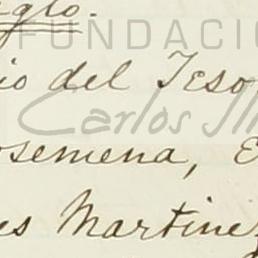 glo.
FUNDACIÓ
io del Teso
Carlos
osemena, E
es Martinez